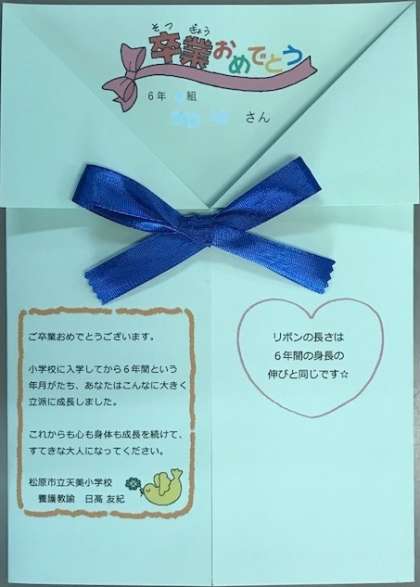 そつ ぎょう
卒業おめでとう
6年 組
さん
ご卒業おめでとうございます。
小学校に入学してから6年間という
年月がたち、あなたはこんなに大きく
立派に成長しました。
これからも心も身体も成長を続けて、
すてきな大人になってください。
松原市立天美小学校
養護教諭 日高 友紀
リボンの長さは
6年間の身長の
伸びと同じです☆